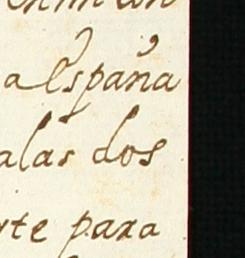 a españa
alas dos
rte para